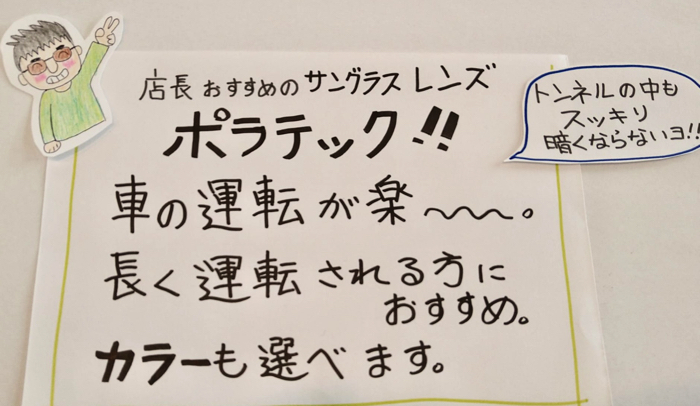 店長 おすすめの サングラス レンズ
ポラテック!!
トンネルの中も
スッキリ
暗くならないヨ!!
車の運転が楽〜〜〜。
長く運転される方に
おすすめ。
カラーも選べます。